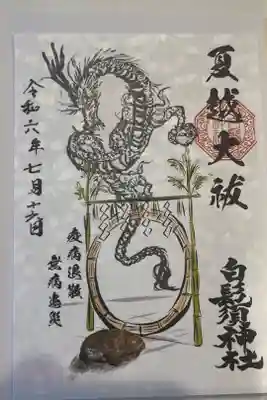 夏越大祓
白髭須神社
疫病退散
無病息災
令和六年七月十六日